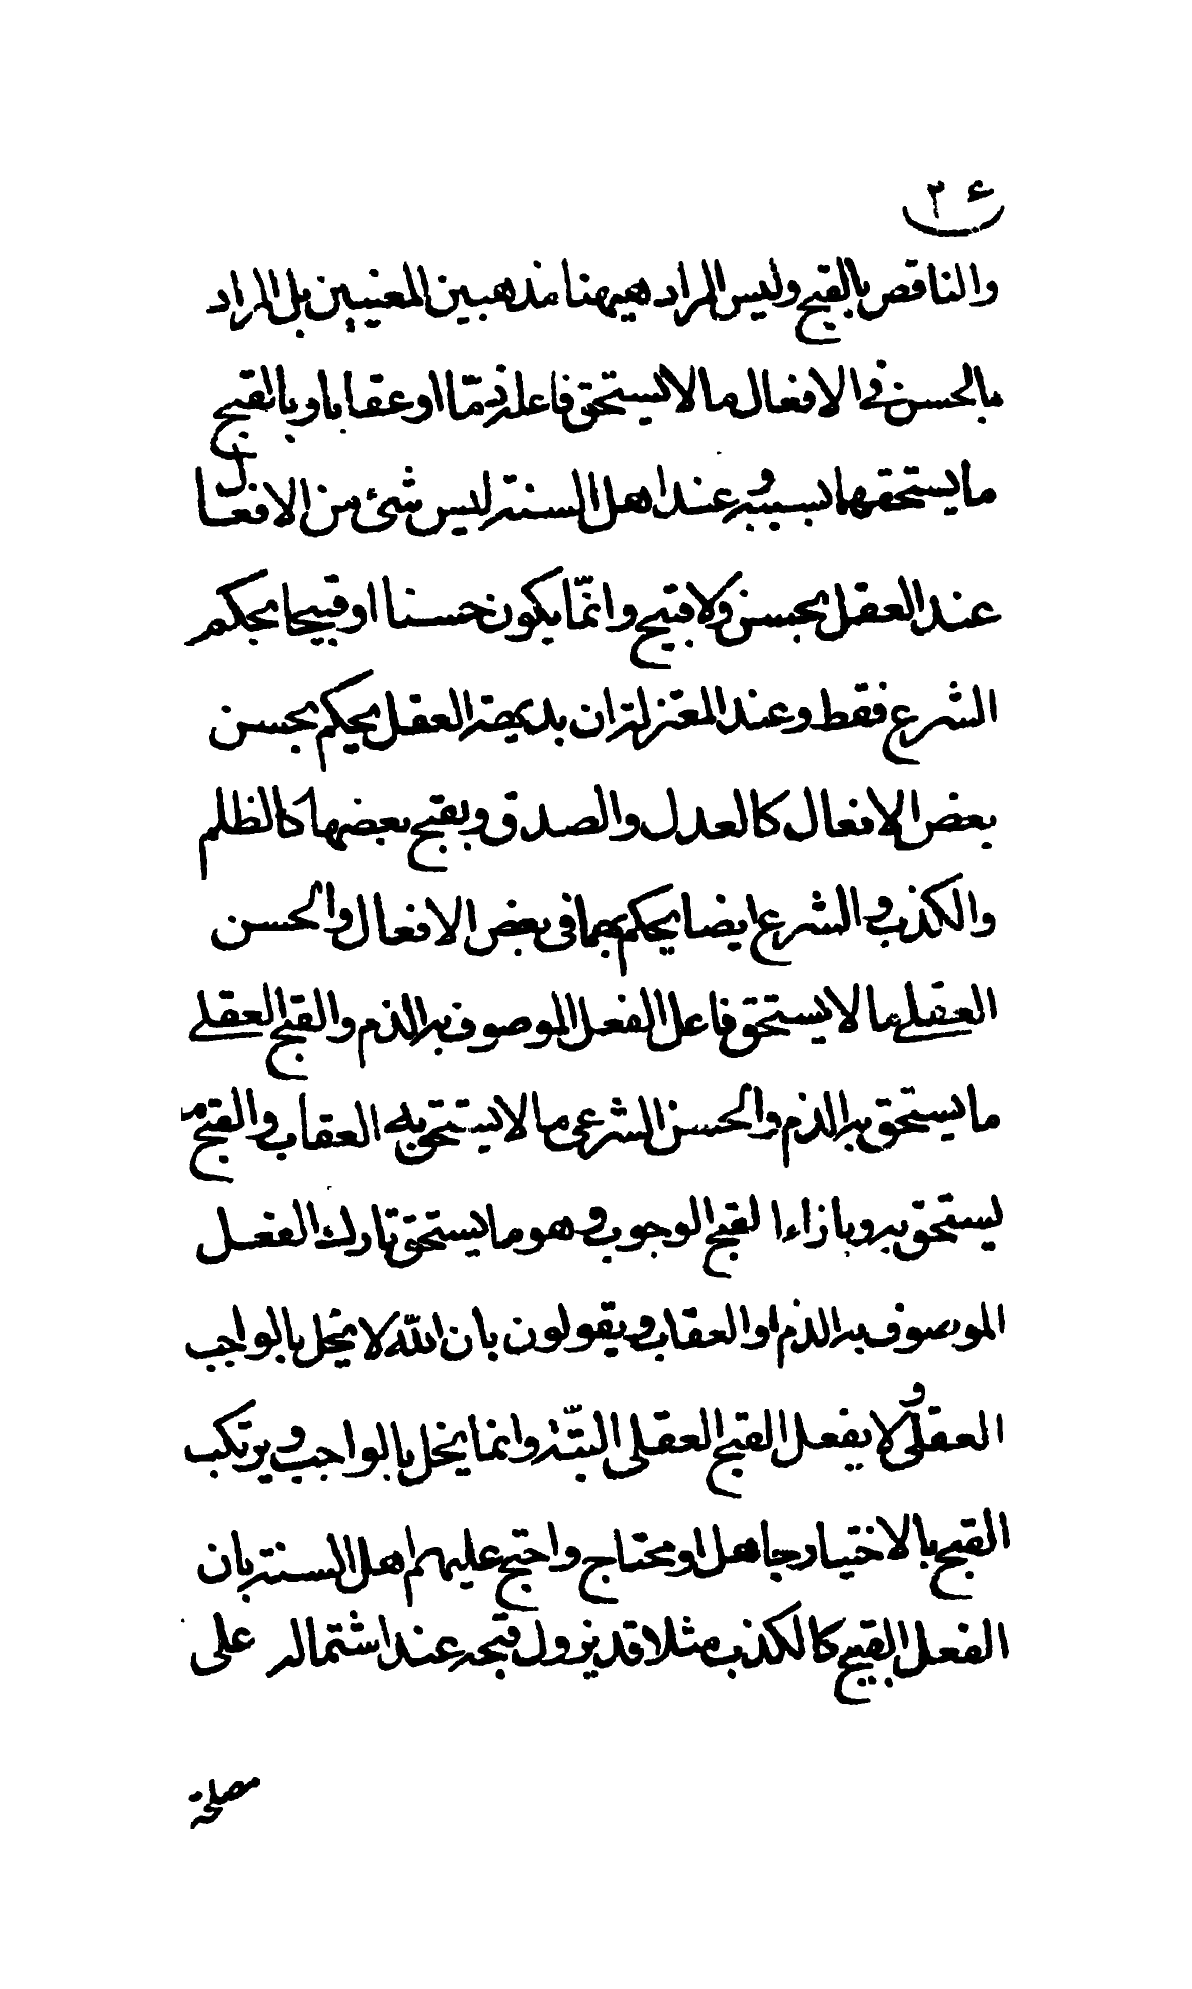 ٢٤
والناقص بالقبح وليس المراد هيهنا مذهبين المعنيين بل المراد
بالحسن في الافعال ما لا يستحق فاعله ذمّا او عقابا وبالقبح
ما يستحقهما بسببه وعند اهل السنة ليس شئ من الافعال
عند العقل بحسن ولا قبيح وانّما يكون حسنا او قبيحا بحكم
الشرع فقط وعند المعتزلة ان بديهة العقل يحكم بحسن
بعض الافعال كالعدل والصدق وبقبح بعضها كالظلم
والكذب والشرع ايضا يحكم بهما في بعض الافعال والحسن
العقلي ما لا يستحق فاعل الفعل الموصوف به الذم والقبح العقلي
ما يستحق به الذم والحسن الشرعي ما لا يستحق به العقاب والقبح ما
يستحق به وبازاء القبح الوجوب وهو ما يستحق تارك الفعل
الموصوف به الذم او العقاب ويقولون بان الله لا يخل بالواجب
العقلي ولا يفعل القبح العقلي البتّة وانما يخل بالواجب ويرتكب
القبح بالاختيار جاهل او محتاج واحتج عليهم اهل السنة بان
الفعل القبيح كالكذب مثلا قد يزول قبحه عند اشتماله على
مصلحة